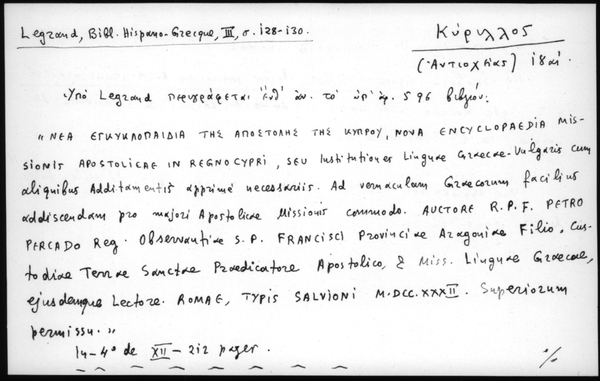 Legrand, Bibl. Hispano-Grecque, III, σ. 128-130.
Κύριλλος
(Ἀντιοχείας) 18 αἰ.
Ὑπὸ Legrand περιγράφεται ἐνθ' ἀν. τὸ ὑπ' ἀρ. 596 βιβλίον:
"ΝΕΑ ΕΓΚΥΚΛΟΠΑΙΔΙΑ ΤΗΣ ΑΠΟΣΤΟΛΗΣ ΤΗΣ ΚΥΠΡΟΥ, NOVA ENCYCLOPAEDIA MIS-
SIONIS APOSTOLICAE IN REGNO CYPRI, SEU Institutiones Linguae Graecae-Vulgaris cum
aliquibus Additamentis apprimè necessariis. Ad vernaculam Graecorum facilius
addiscendam pro majori Apostolicae Missionis commodo. AUCTORE R. P. F. PETRO
PERCADO Reg. Observantiae S. P. FRANCISCI Provinciae Aragoniae Filio, Cus-
todiae Terrae Sanctae Praedicatore Apostolico, & Miss. Linguae Graecae,
ejusdemque Lectore. ROMAE, TYPIS SALVIONI M.DCC.XXXII. Superiorum
permissu."
In-4° de XII-212 pages.
·/.